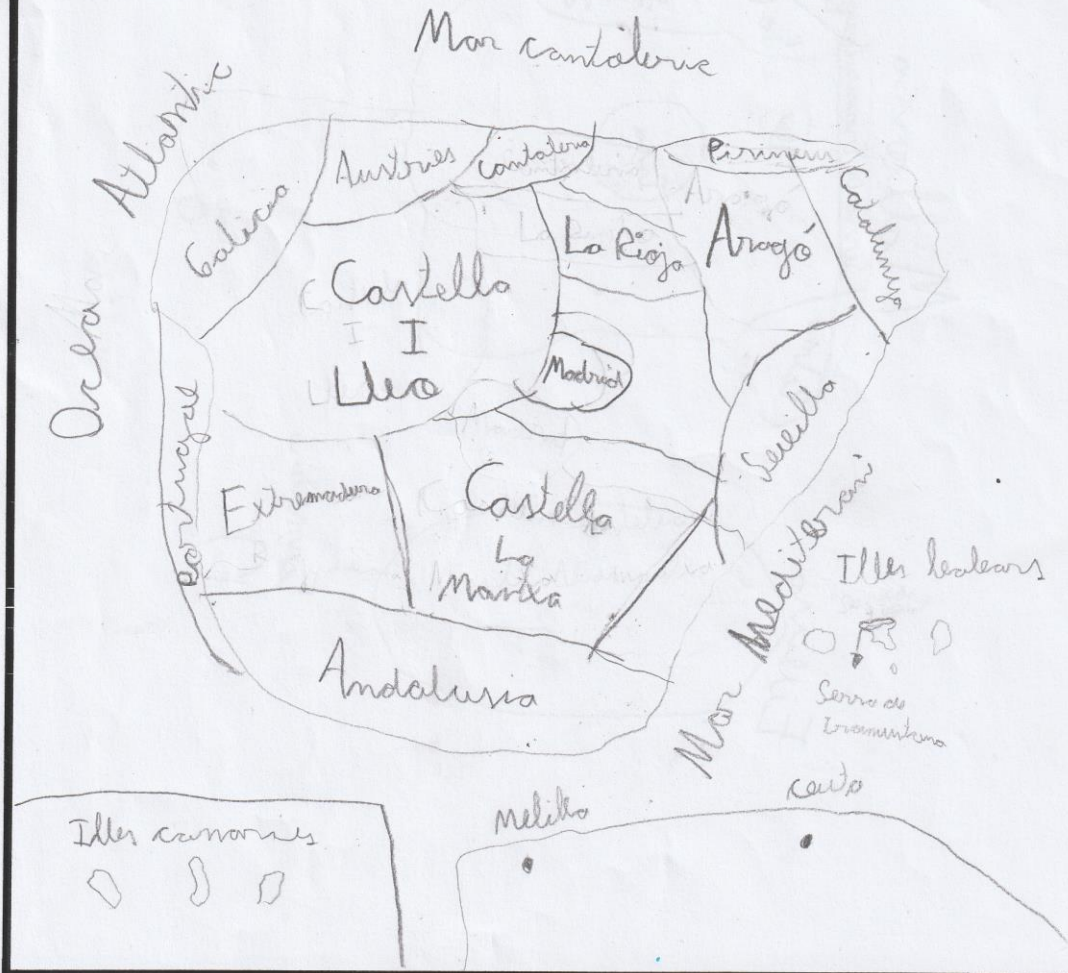 Mar cantàbric
Atlantic
Ocea
Galicia
Austries
Cantabria
Pirineus
Catalunya
La Rioja
Aragó
Castella
I
Lleo
Madrid
Portugal
Sevilla
Extremadura
Castella
La
Manxa
Mar Mediterani
Illes balears
Serra de
tramuntana
Andalusia
Illes canaries
Melilla
ceuta